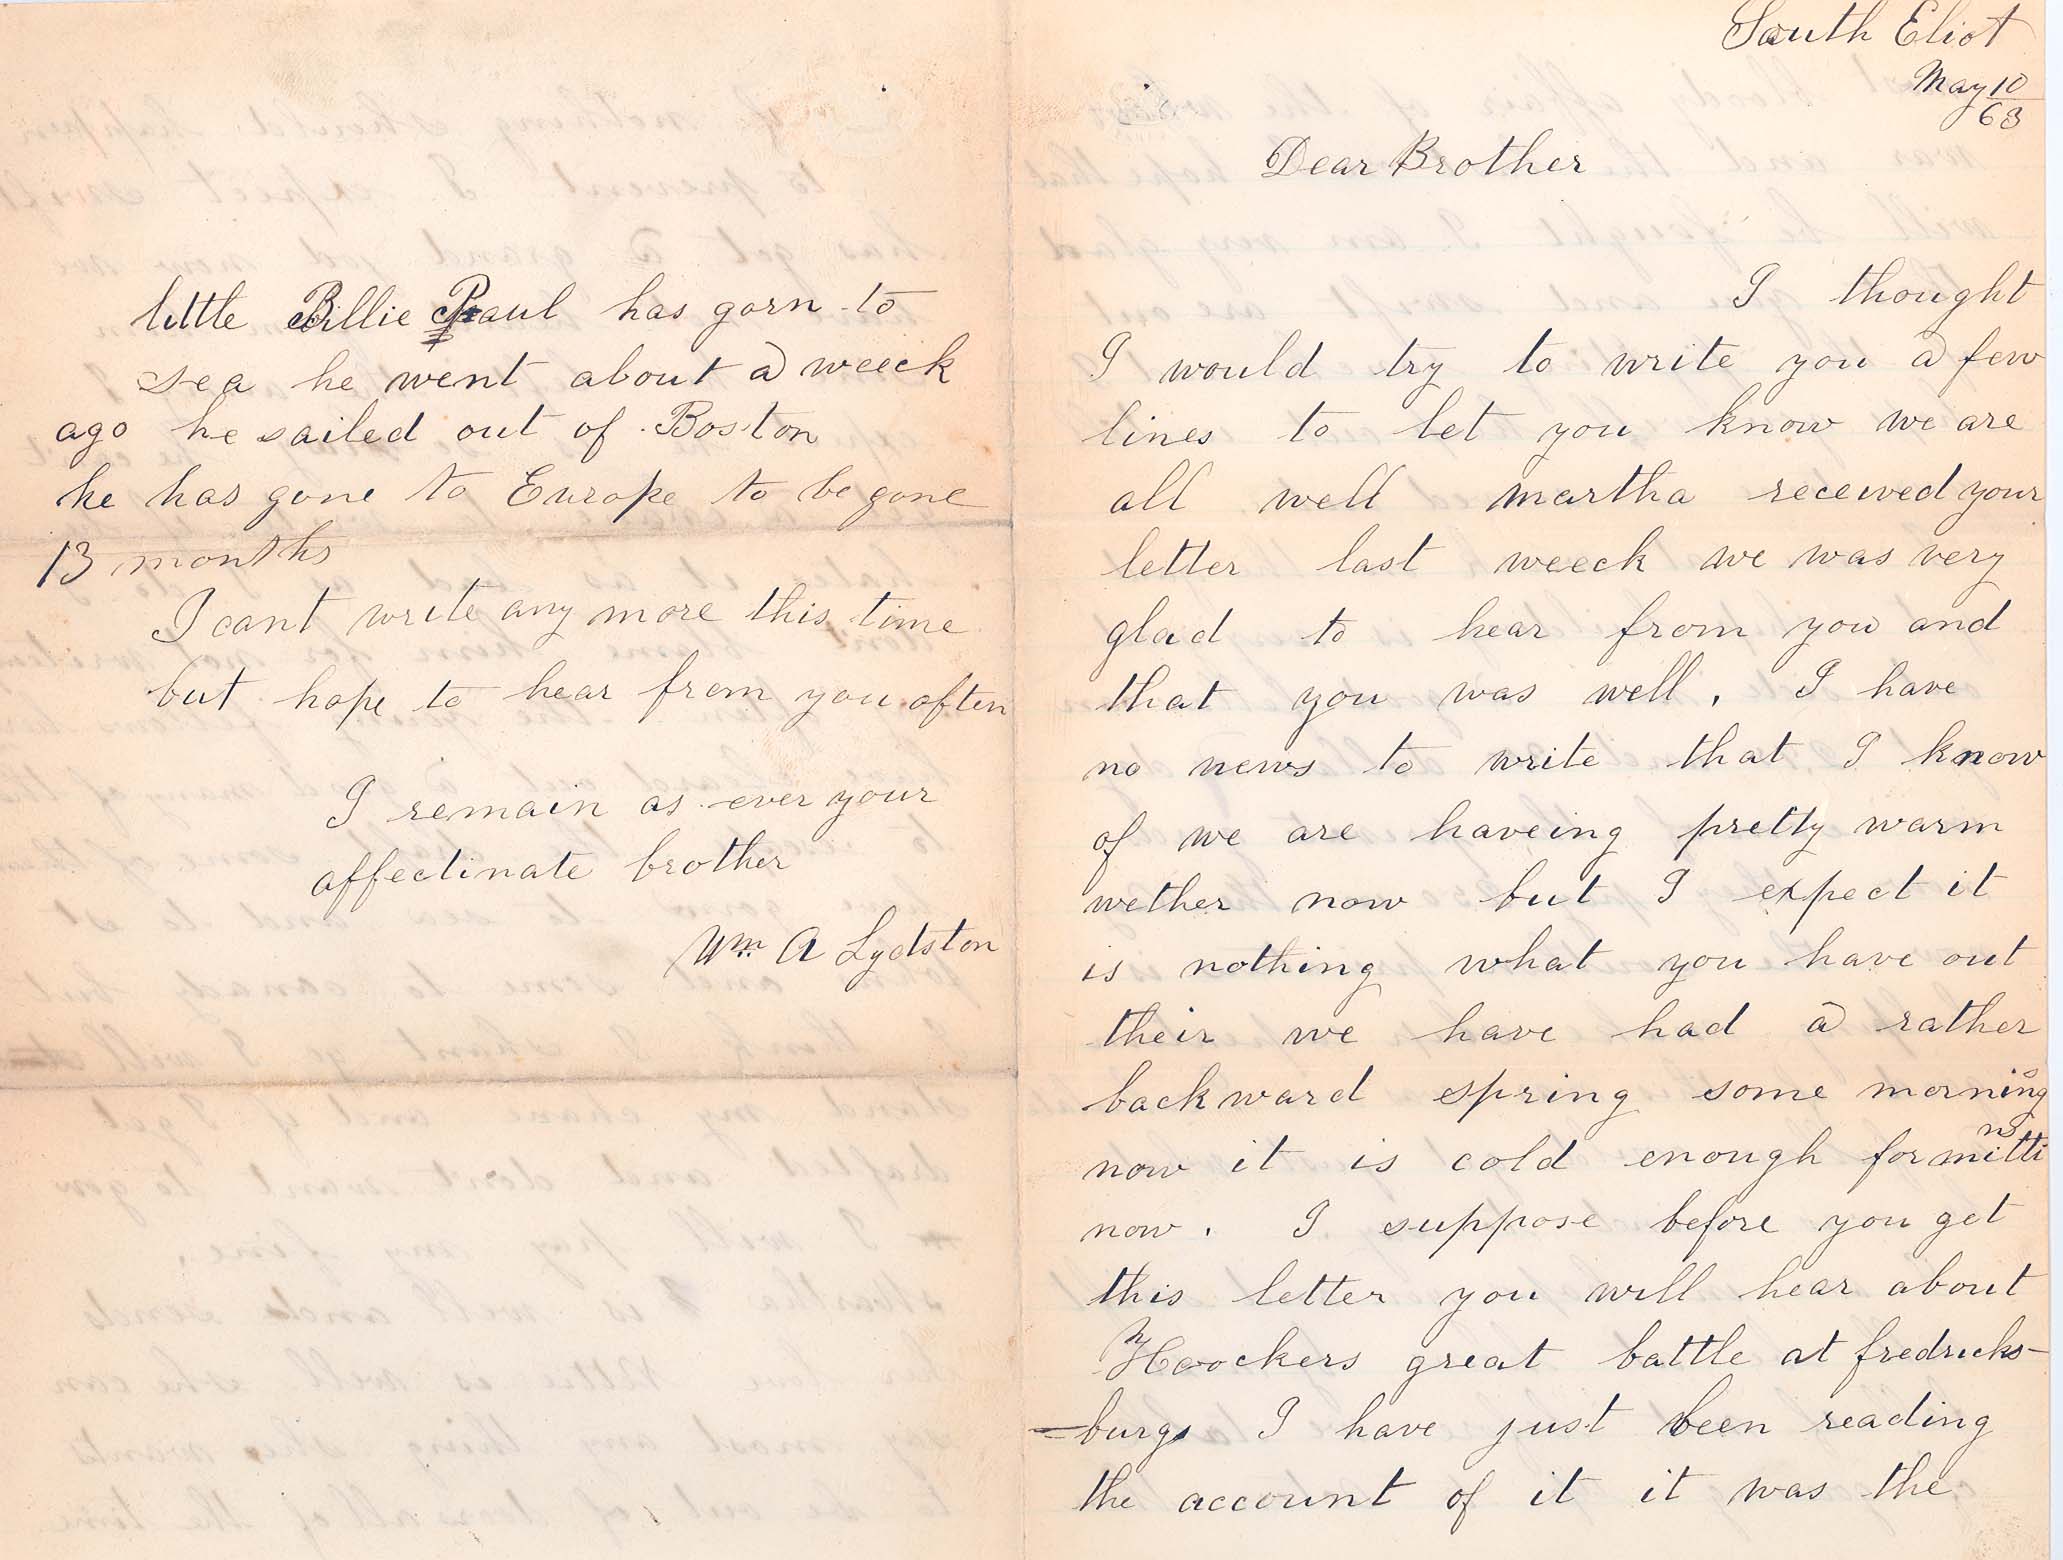 South Eliot
May 10
63
Dear Brother
I thought
I would try to write you a few
lines to let you know we are
all well martha received your
letter last weeck we was very
glad to hear from you and
that you was well. I have
no news to write that I know
of we are haveing pretty warm
wether now but I expect it
is nothing what you have out
their we have had a rather
backward spring some mornings
now it is cold enough for mittins
now. I suppose before you get
this letter you will hear about
Hoockers great battle at fredricks-
=burg I have just been reading
the account of it it was the
little Billie Paul has gorn to
sea he went about a weeck
ago he sailed out of Boston
he has gone to Europe to be gone
13 months
I cant write any more this time
but hope to hear from you often
I remain as ever your
affectinate brother
Wm A Lydston